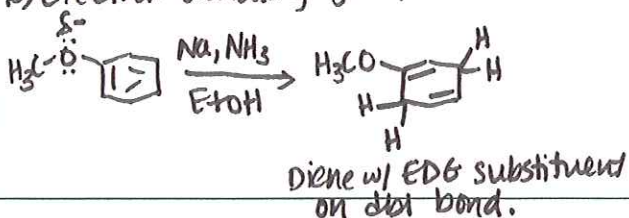 δ-
H₃C-Ö: Na, NH₃ H₃CO H
EtOH H H
H
Diene w/ EDG substituent
on dbl bond.